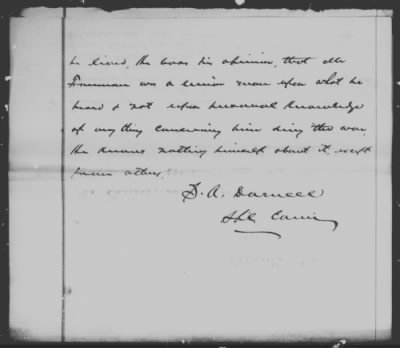 he lived, he bases his opinion, that Mr
Freeman was a union man upon what he
heard & not upon personal knowledge
of anything concerning him diring the war
He knows nothing himself about it, except
from others.
S. A. Darnell
Spl Comr